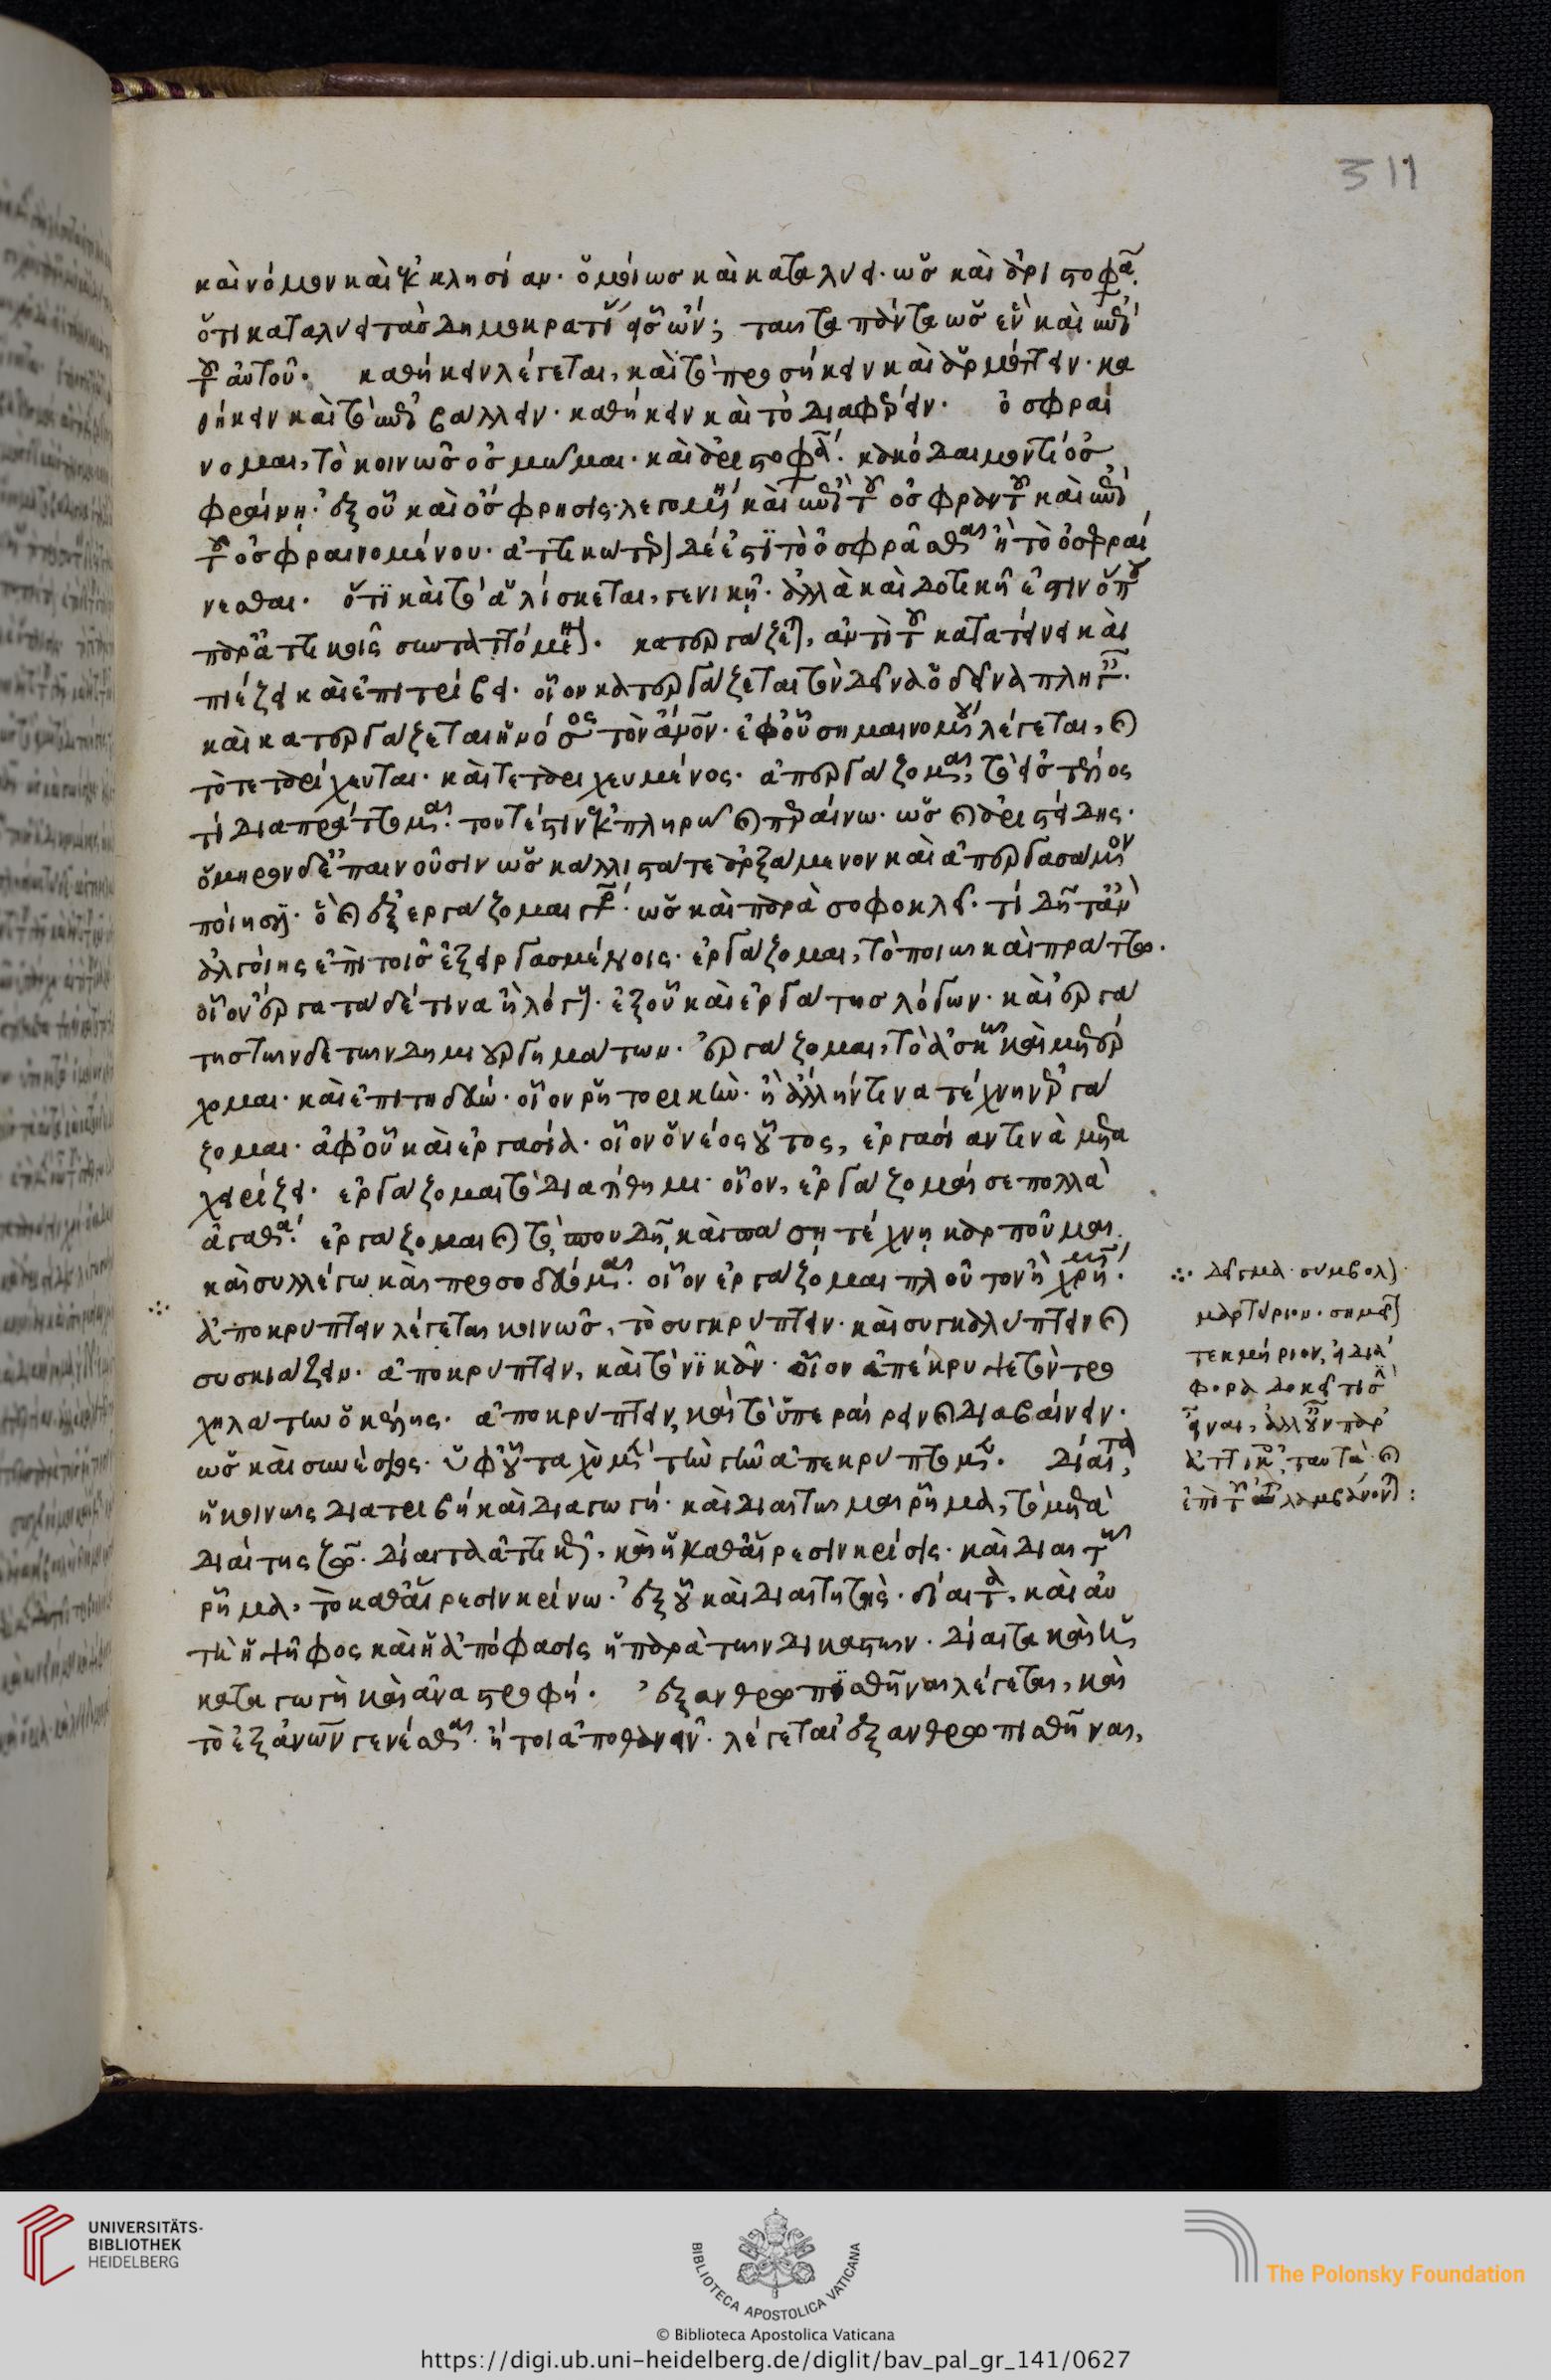 311
καὶ νόμον καὶ ἐκκλησίαν. ὁμοίως καὶ καταλύει. ὡς καὶ ἀριστοφά.
ὅτι καταλύει τὰς δημοκρατί ταῦτα πάντα ὡς ἓν καὶ ἐπὶ
τοῦ αὐτοῦ. καθήκειν λέγεται, καὶ τὸ προσήκειν καὶ ἁρμόττειν. κα
θήκειν καὶ τὸ ἐπιβάλλειν. καθήκειν καὶ τὸ διαφθείρειν. ὀσφραί
νομαι, τὸ κοινῶς ὀσμῶμαι. καὶ ἀριστοφά. κακόδαιμον τί ὀσ
φραίνῃ. ἐξ οὗ καὶ ὄσφρησις λεγομένη καὶ ἐπὶ τοῦ ὀσφραντοῦ καὶ ἐπὶ
τοῦ ὀσφραινομένου. ἀττικώτερον δέ ἐστι τὸ ὀσφρᾶσθαι ἢ τὸ ὀσφραί
νεσθαι. ὅτι καὶ τὸ ἁλίσκεται, γενικῇ. ἀλλὰ καὶ δοτικῇ ἐστιν ὅπου
παρὰ ἀττικοῖς συνταττόμενον. κατεργάζεται, ἀντὶ τοῦ κατατείνει καὶ
πιέζει καὶ ἐπιτρίβει. οἷον κατεργάζεται τὸν δεῖνα ὁ δεῖνα πληγαῖς.
καὶ κατεργάζεται ἡ νόσος τὸν ἄνον. ἐφ' οὗ σημαινομένου λέγεται, καὶ
τὸ τεταρίχευται. καὶ τεταριχευμένος. ἀπεργάζομαι, τὸ εἰς τέλος
τι διαπράττομαι. τουτέστιν ἐκπληρῶ καὶ περαίνω. ὡς καὶ ἀριστείδης.
ὅμηρον δὲ ἐπαινοῦσιν ὡς κάλλιστά τε ἀρξάμενον καὶ ἀπεργασάμενον
ποίησιν. ὃ καὶ ἐξεργάζομαι ὡς καὶ παρὰ σοφοκλεῖ. τί δῆτ' ἂν
ἀλγοίης ἐπὶ τοῖς ἐξειργασμένοις. ἐργάζομαι, τὸ ποιῶ καὶ πράττω.
οἷον ἔργα τάδε τινὰ ἢ λόγον. ἐξ οὗ καὶ ἐργάτης λόγων. καὶ ἐργά
της τῶνδε τῶν δημιουργημάτων. ἐργάζομαι, τὸ ἀσκῶ καὶ μετέρ
χομαι. καὶ ἐπιτηδεύω. οἷον ῥητορικὴν. ἢ ἄλλην τινὰ τέχνην ἐργά
ζομαι. ἀφ' οὗ καὶ ἐργασία. οἷον ὁ νέος οὗτος, ἐργασίαν τινὰ μετα
χειρίζει. ἐργάζομαι τὸ διατίθημι. οἷον, ἐργάζομαί σε πολλὰ
ἀγαθά. ἐργάζομαι καὶ τὸ, σπουδῇ καὶ πάσῃ τέχνῃ καρποῦμαι
καὶ συλλέγω καὶ προσοδεύομαι. οἷον ἐργάζομαι πλοῦτον ἢ χρήματα.
ἀποκρύπτειν λέγεται κοινῶς, τὸ συγκρύπτειν. καὶ συγκαλύπτειν καὶ
συσκιάζειν. ἀποκρύπτειν, καὶ τὸ νικᾶν. οἷον ἀπέκρυψε τὸν τρο
χηλάτην ὁ κέλης. ἀποκρύπτειν, καὶ τὸ ὑπεραίρειν καὶ διαβαίνειν.
ὡς καὶ συνέσιος. ὑφ' οὗ ταχὺ μὲν τὴν γῆν ἀπεκρύπτομεν. δίαιτα,
ἡ κοινῶς διατριβὴ καὶ διαγωγή. καὶ διαιτῶμαι ῥῆμα, τὸ μετὰ
διαίτης ζῶ. δίαιτα ἀττικῶς, καὶ ἡ καθαίρεσιν κρίσις. καὶ διαιτῶ
ῥῆμα, τὸ καθαίρεσιν κρίνω. ἐξ οὗ καὶ διαιτητὴς. δίαιτα, καὶ αὐ
τὴ ἡ ψῆφος καὶ ἡ ἀπόφασις ἡ παρὰ τῶν δικαστῶν. δίαιτα καὶ ἡ
καταγωγὴ καὶ ἀναστροφή. ἐξανθρωπισθῆναι λέγεται, καὶ
τὸ ἐξ ἀνων γενέσθαι. ἤτοι ἀποθανεῖν. λέγεται ἐξανθρωπισθῆναι,
δεῖγμα. σύμβολον.
μαρτύριον. σημεῖον
τεκμήριον, ἡ δια
φορὰ δοκεῖ τισὶν
εἶναι, ἀλλ' οὖν παρ'
ἀττικοῖς, ταυτὰ. καὶ
ἐπὶ τοῦ αὐτοῦ λαμβάνονται:
UNIVERSITÄTS-
BIBLIOTHEK
HEIDELBERG
BIBLIOTECA APOSTOLICA VATICANA
The Polonsky Foundation
© Biblioteca Apostolica Vaticana
https://digi.ub.uni-heidelberg.de/diglit/bav_pal_gr_141/0627